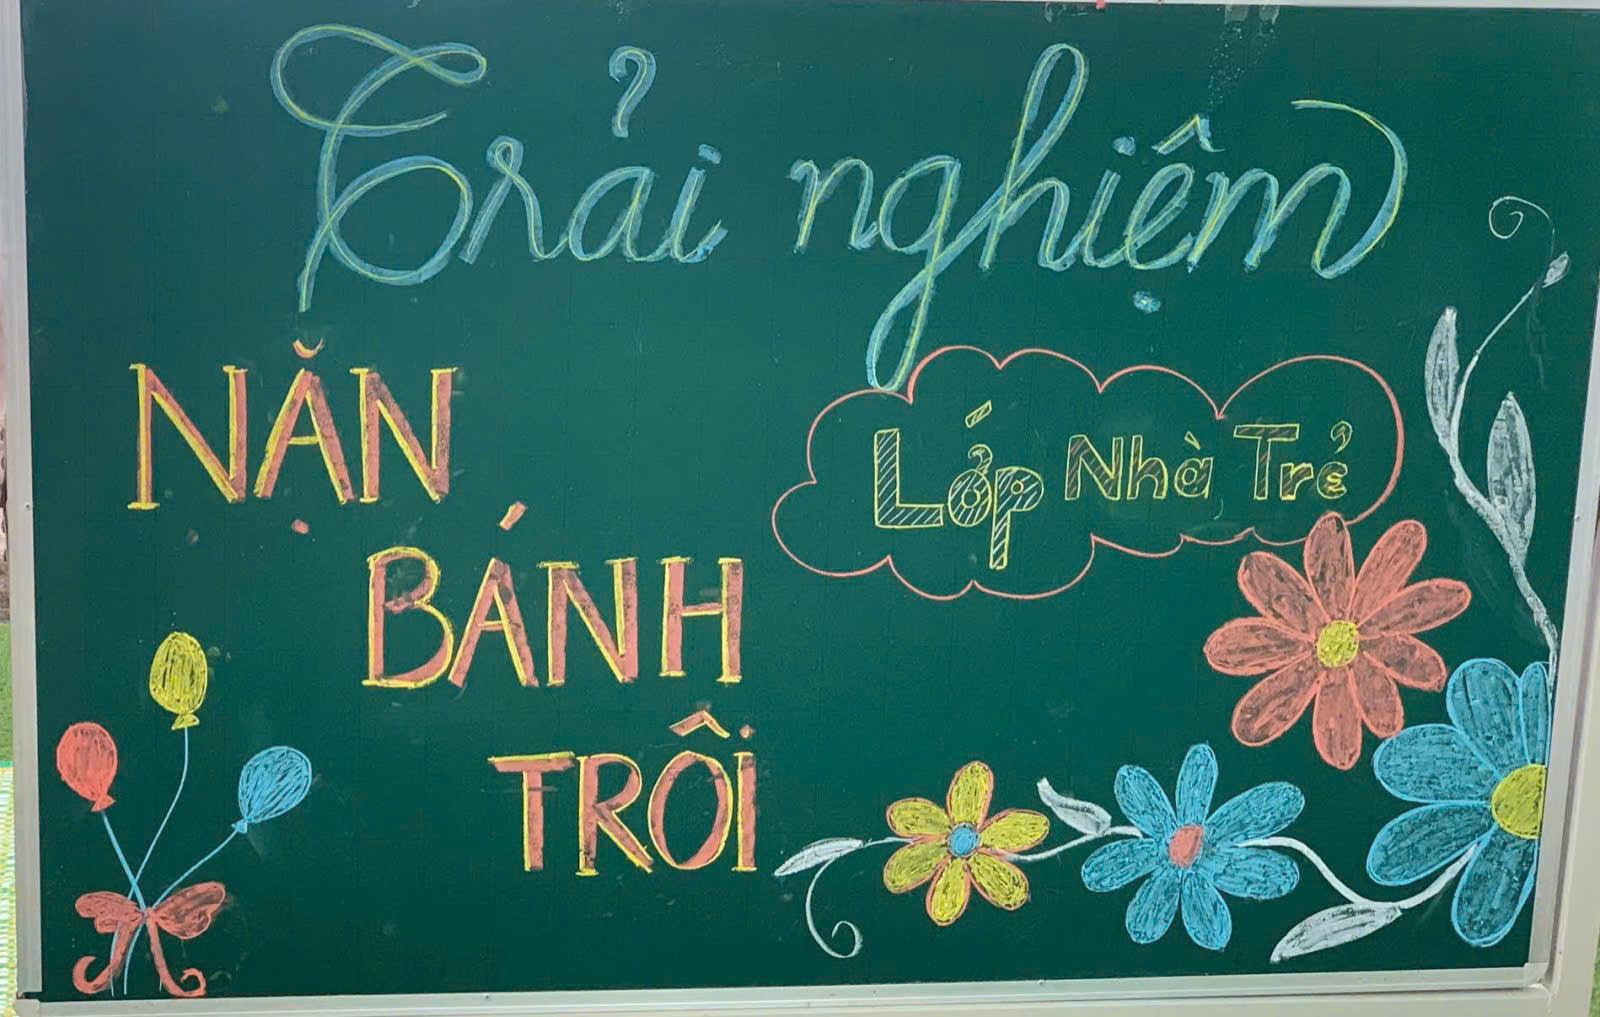 Trải nghiệm
NẶN
BÁNH
TRÔI
Lớp Nhà Trẻ